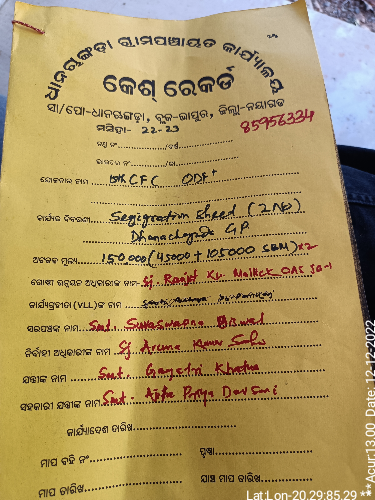 ଧାନଚାଙ୍ଗଡ଼ା ଗ୍ରାମପଞ୍ଚାୟତ କାର୍ଯ୍ୟାଳୟ
କେଶ୍ ରେକର୍ଡ
ସା/ପୋ-ଧାନଚାଙ୍ଗଡ଼ା, ବ୍ଲକ-ଭାପୁର, ଜିଲ୍ଲା-ନୟାଗଡ
ମସିହା- 22-23
85956334
ଯୋଜନାର ନାମ 15th CFC ODF+
କାର୍ଯ୍ୟର ବିବରଣୀ Segigration Sheed (2 No)
G.P.
ଅଟକଳ ମୂଲ୍ୟ 150000 (45000 + 105000 SBM) x2
ଗୋଷ୍ଠୀ ଉନ୍ନୟନ ଅଧିକାରୀଙ୍କ ନାମ- Sj. Ranjit Ku. Mallick OAS
କାର୍ଯ୍ୟାଗ୍ରହୀତା (VLL)ଙ୍କ ନାମ
ସରପଞ୍ଚଙ୍କ ନାମ Smt. Biswal
ନିର୍ବାହୀ ଅଧିକାରୀଙ୍କ ନାମ Sj Aruna Kumar Sahu
ଯନ୍ତ୍ରୀଙ୍କ ନାମ Smt. Gayatri Khatua
ସହକାରୀ ଯନ୍ତ୍ରୀଙ୍କ ନାମ Smt. Priya Devi
କାର୍ଯ୍ୟାଦେଶ ତାରିଖ
ମାପ ବହି ନଂ ପୃଷ୍ଠା
ମାପ ତାରିଖ ଯାଞ୍ଚ ମାପ ତାରିଖ
Lat:Lon-20.29:85.29
**Acur:13.00 Date:12-12-2022